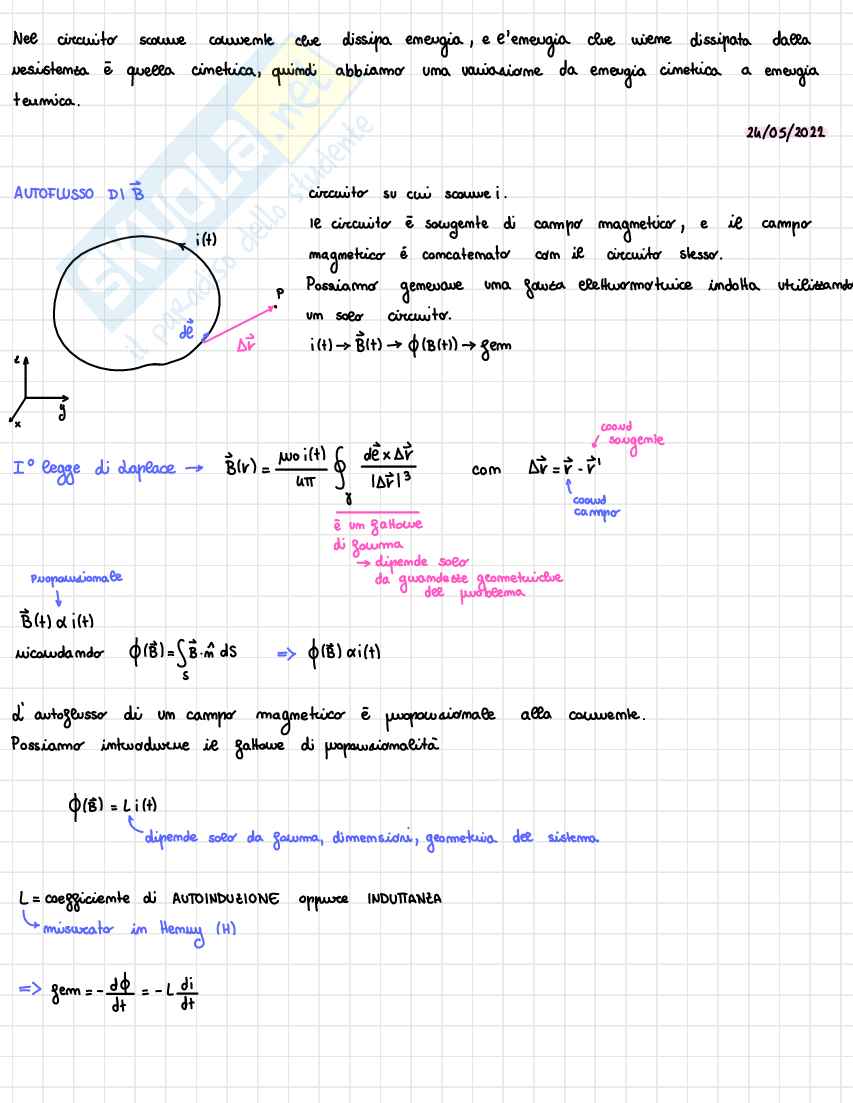 Nel circuito scorre corrente che dissipa energia, e l'energia che viene dissipata dalla
resistenza è quella cinetica, quindi abbiamo una variazione da energia cinetica a energia
termica.
24/05/2022
SKUOLA.net
il paradiso dello studente
AUTOFLUSSO DI B⃗
circuito su cui scorre i.
Il circuito è sorgente di campo magnetico, e il campo
magnetico è concatenato con il circuito stesso.
Possiamo generare una forza elettromotrice indotta utilizzando
un solo circuito.
i(t) → B⃗(t) → ϕ(B(t)) → fem
i(t)
P
dl⃗
Δr⃗
z
y
x
coord
sorgente
I° legge di Laplace → B⃗(r) = μ0 i(t)/4π ∮γ dl⃗ × Δr⃗/|Δr⃗|³ con Δr⃗ = r⃗ - r⃗'
coord
campo
è un fattore
di forma
→ dipende solo
da grandezze geometriche
del problema
Proporzionale
B⃗(t) α i(t)
ricordando ϕ(B⃗) = ∫S B⃗·n̂ dS => ϕ(B⃗) α i(t)
L'autoflusso di un campo magnetico è proporzionale alla corrente.
Possiamo introdurre il fattore di proporzionalità
ϕ(B⃗) = L i(t)
dipende solo da forma, dimensioni, geometria del sistema
L = coefficiente di AUTOINDUZIONE oppure INDUTTANZA
misurato in Henry (H)
=> fem = - dϕ/dt = - L di/dt